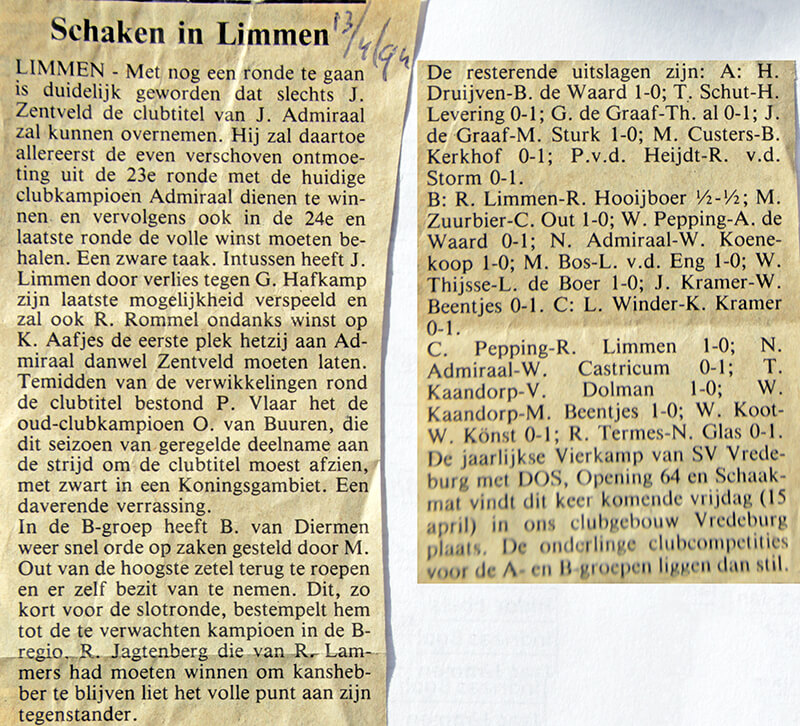 Schaken in Limmen
13/4/94
LIMMEN - Met nog een ronde te gaan
is duidelijk geworden dat slechts J.
Zentveld de clubtitel van J. Admiraal
zal kunnen overnemen. Hij zal daartoe
allereerst de even verschoven ontmoe-
ting uit de 23e ronde met de huidige
clubkampioen Admiraal dienen te win-
nen en vervolgens ook in de 24e en
laatste ronde de volle winst moeten be-
halen. Een zware taak. Intussen heeft J.
Limmen door verlies tegen G. Hafkamp
zijn laatste mogelijkheid verspeeld en
zal ook R. Rommel ondanks winst op
K. Aafjes de eerste plek hetzij aan Ad-
miraal danwel Zentveld moeten laten.
Temidden van de verwikkelingen rond
de clubtitel bestond P. Vlaar het de
oud-clubkampioen O. van Buuren, die
dit seizoen van geregelde deelname aan
de strijd om de clubtitel moest afzien,
met zwart in een Koningsgambiet. Een
daverende verrassing.
In de B-groep heeft B. van Diermen
weer snel orde op zaken gesteld door M.
Out van de hoogste zetel terug te roepen
en er zelf bezit van te nemen. Dit, zo
kort voor de slotronde, bestempelt hem
tot de te verwachten kampioen in de B-
regio. R. Jagtenberg die van R. Lam-
mers had moeten winnen om kansheb-
ber te blijven liet het volle punt aan zijn
tegenstander.
De resterende uitslagen zijn: A: H.
Druijven-B. de Waard 1-0; T. Schut-H.
Levering 0-1; G. de Graaf-Th. al 0-1; J.
de Graaf-M. Sturk 1-0; M. Custers-B.
Kerkhof 0-1; P.v.d. Heijdt-R. v.d.
Storm 0-1.
B: R. Limmen-R. Hooijboer ½-½; M.
Zuurbier-C. Out 1-0; W. Pepping-A. de
Waard 0-1; N. Admiraal-W. Koene-
koop 1-0; M. Bos-L. v.d. Eng 1-0; W.
Thijsse-L. de Boer 1-0; J. Kramer-W.
Beentjes 0-1. C: L. Winder-K. Kramer
0-1.
C. Pepping-R. Limmen 1-0; N.
Admiraal-W. Castricum 0-1; T.
Kaandorp-V. Dolman 1-0; W.
Kaandorp-M. Beentjes 1-0; W. Koot-
W. Könst 0-1; R. Termes-N. Glas 0-1.
De jaarlijkse Vierkamp van SV Vrede-
burg met DOS, Opening 64 en Schaak-
mat vindt dit keer komende vrijdag (15
april) in ons clubgebouw Vredeburg
plaats. De onderlinge clubcompetities
voor de A- en B-groepen liggen dan stil.